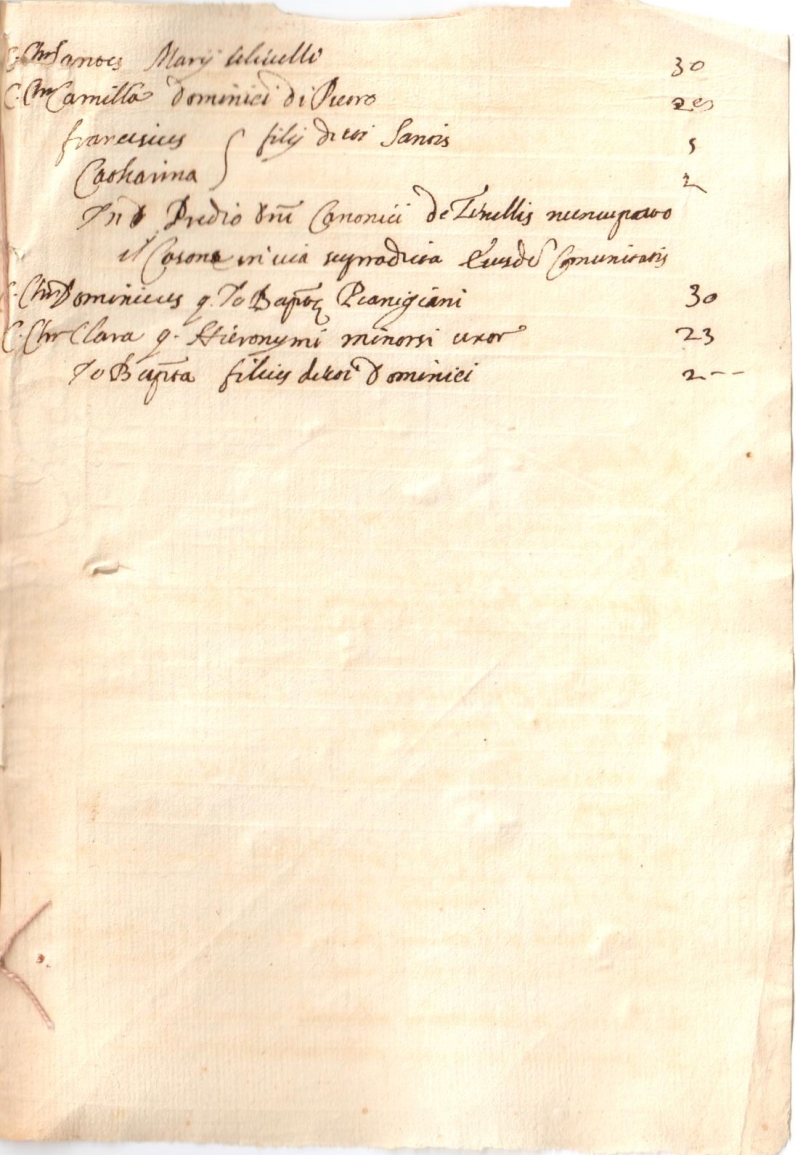 C. Chr Sanctes Marij 30
C. Chr Camilla Dominici di Pietro 20
franciscus } filij dicti Sanctis 5
Catharina } 2
In Predio Dni Canonici de nuncupato
il Casone in via supradicta Eiusdē Comunitatis
C. Chr Dominicus q. Io Bapte Pianigiani 30
C. Chr Clara q. Hieronymi minorsi uxor 23
Io Bapta filius dicti Dominici 2 --